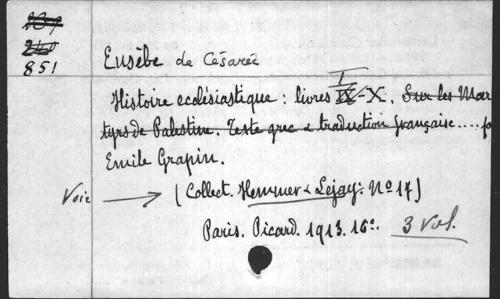 137
240
851
Eusèbe de Césarée
I
Histoire ecclésiastique : livres IX-X. Sur les Mar
tyrs de Palestine. Texte grec & traduction française..... po
Emile Grapin.
Voir → (Collect. Hemmer & Lejay: No 17)
Paris. Picard. 1913. 16o. 3 vol.